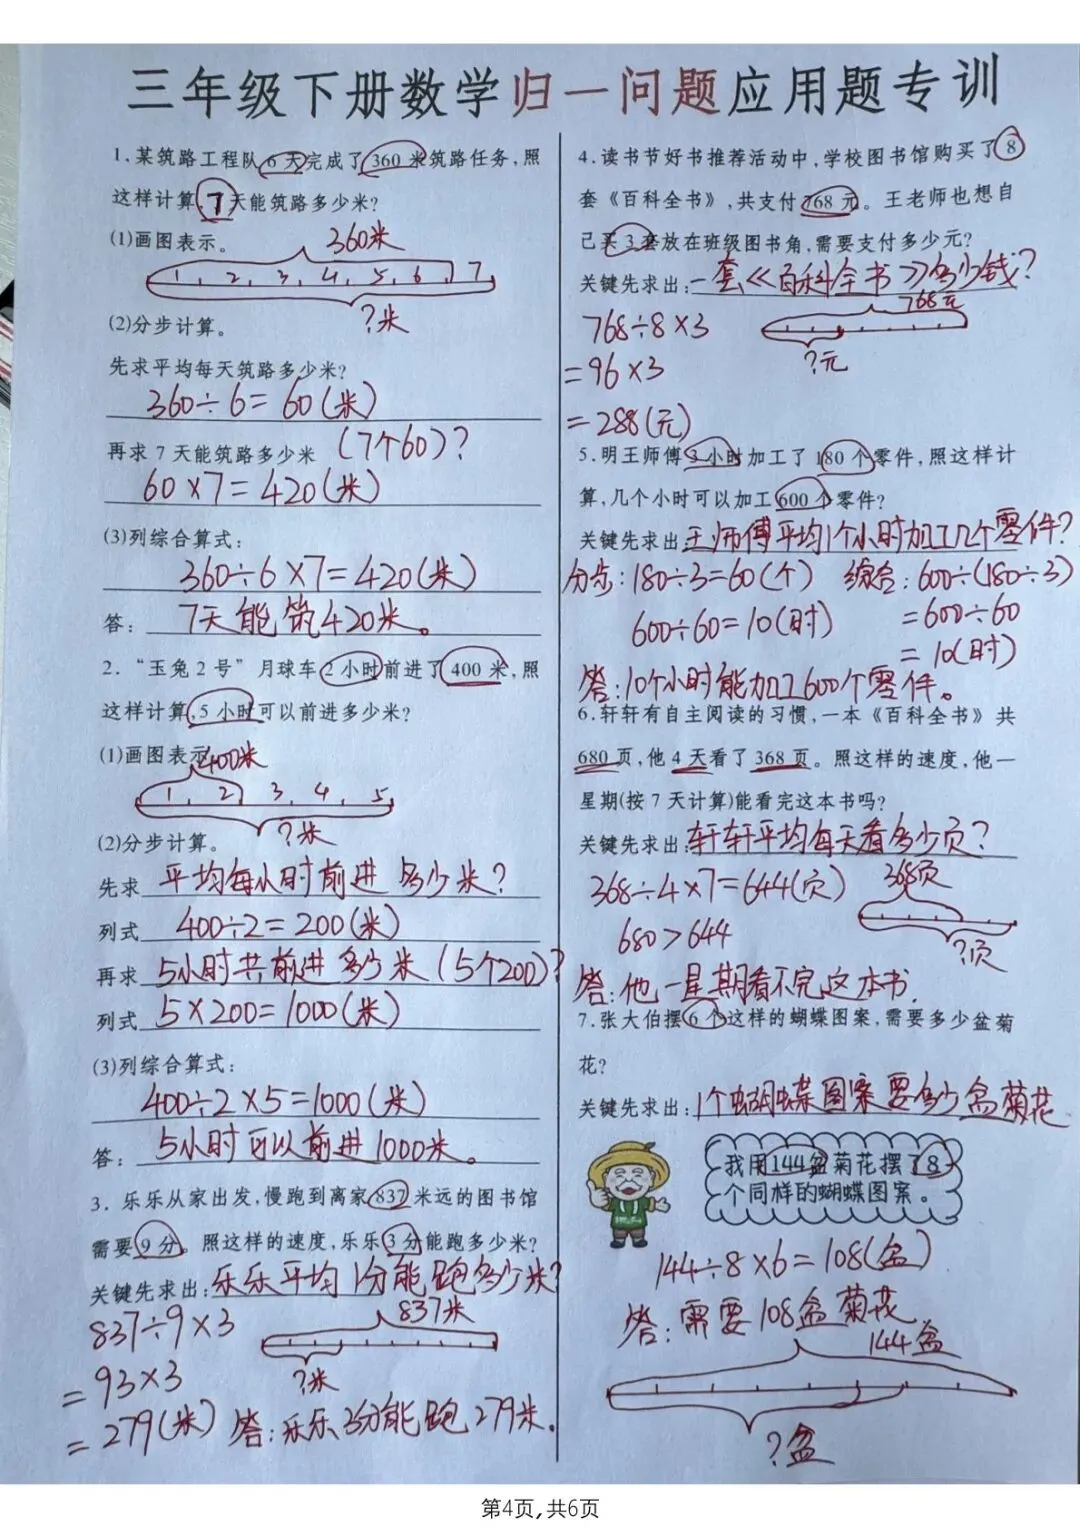 三年级下册数学归一问题应用题专训
1.某筑路工程队6天完成了360米筑路任务,照
这样计算,7天能筑路多少米?
(1)画图表示。
360米
1 2 3 4 5 6 7
?米
(2)分步计算。
先求平均每天筑路多少米?
360÷6=60(米)
再求7天能筑路多少米 (7个60)?
60×7=420(米)
(3)列综合算式:
360÷6×7=420(米)
答: 7天能筑420米。
2.“玉兔2号”月球车2小时前进了400米,照
这样计算,5小时可以前进多少米?
(1)画图表示
400米
1 2 3 4 5
?米
(2)分步计算。
先求 平均每小时前进多少米?
列式 400÷2=200(米)
再求 5小时共前进多少米(5个200)?
列式 5×200=1000(米)
(3)列综合算式:
400÷2×5=1000(米)
答: 5小时可以前进1000米。
3.乐乐从家出发,慢跑到离家837米远的图书馆
需要9分。照这样的速度,乐乐3分能跑多少米?
关键先求出:乐乐平均1分能跑多少米?
837÷9×3
837米
=93×3
?米
=279(米) 答:乐乐3分能跑279米.
4.读书节好书推荐活动中,学校图书馆购买了8
套《百科全书》,共支付768元。王老师也想自
己买3套放在班级图书角,需要支付多少元?
关键先求出:一套《百科全书》多少钱?
768÷8×3
768元
=96×3
?元
=288(元)
5.明王师傅3小时加工了180个零件,照这样计
算,几个小时可以加工600个零件?
关键先求出:王师傅平均1个小时加工几个零件?
分步:180÷3=60(个) 综合:600÷(180÷3)
600÷60=10(时) =600÷60
=10(时)
答:10个小时能加工600个零件。
6.轩轩有自主阅读的习惯,一本《百科全书》共
680页,他4天看了368页。照这样的速度,他一
星期(按7天计算)能看完这本书吗?
关键先求出:轩轩平均每天看多少页?
368÷4×7=644(页) 368页
680>644
?页
答:他一星期看不完这本书.
7.张大伯摆6个这样的蝴蝶图案,需要多少盆菊
花?
关键先求出:1个蝴蝶图案要多少盆菊花
我用144盆菊花摆了8
个同样的蝴蝶图案。
144÷8×6=108(盆)
答:需要108盆菊花
144盆
?盆
第4页,共6页